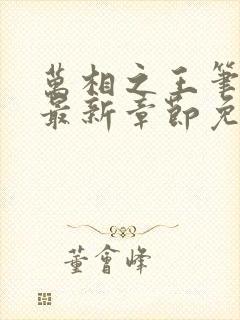 萬相之王筆
最新章節免
董會峰